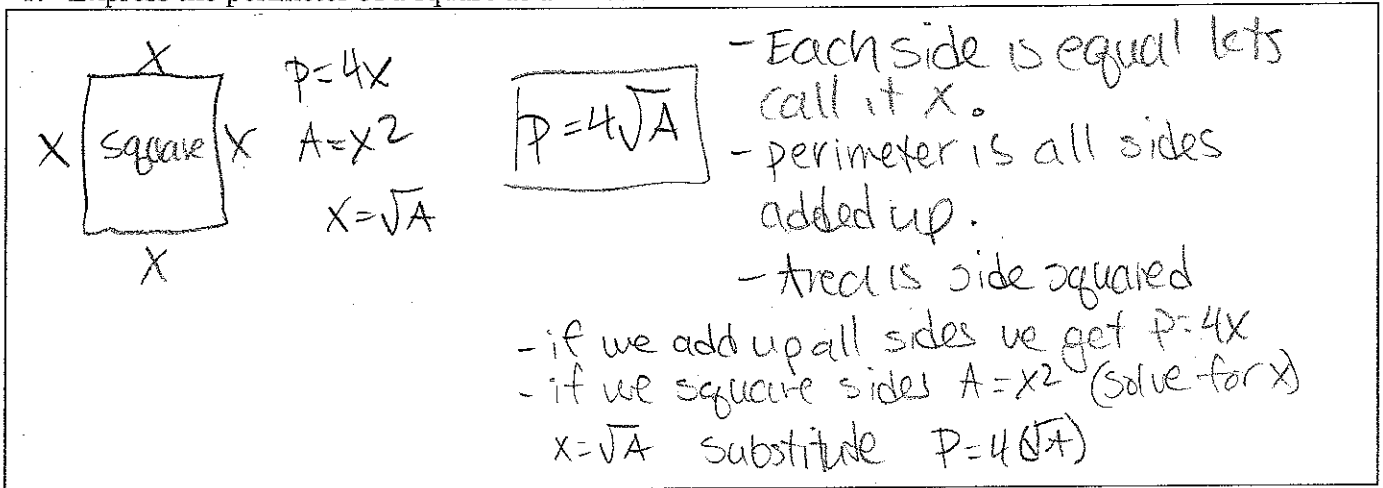 X
X square X
X
P=4X
A=X2
X=√A
P=4√A
- Each side is equal lets
call it X.
- perimeter is all sides
added up.
- Area is side squared
- if we add up all sides we get P=4X
- if we square sides A=X2 (solve for X)
X=√A substitute P=4(√A)